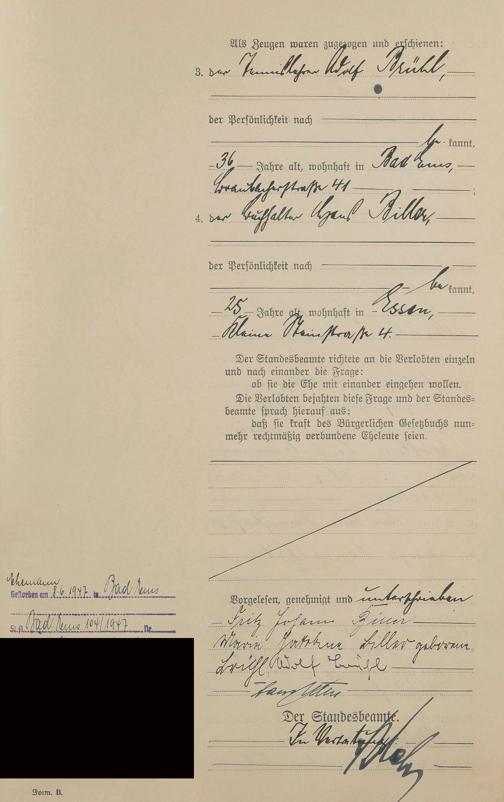 Als Zeugen waren zugezogen und erschienen:
3. der Tennislehrer Adolf Brühl,
der Persönlichkeit nach
be kannt,
36 Jahre alt, wohnhaft in Bad Ems,
Braubacherstraße 41 ;
4. der Buchhalter Hans Biller,
der Persönlichkeit nach
be kannt,
25 Jahre alt, wohnhaft in Essen,
Kleine Steinstraße 4.
Der Standesbeamte richtete an die Verlobten einzeln
und nach einander die Frage:
ob sie die Ehe mit einander eingehen wollen.
Die Verlobten bejahten diese Frage und der Standes=
beamte sprach hierauf aus:
daß sie kraft des Bürgerlichen Gesetzbuchs nun=
mehr rechtmäßig verbundene Eheleute seien.
Ehemann
Gestorben am 8.6.1947 in Bad Ems
St.A. Bad Ems 104/1947 Nr.
Vorgelesen, genehmigt und unterschrieben
Fritz Johann
Maria Biller geborene
Brühl Adolf Brühl
Der Standesbeamte.
In Vertretung
Form. B.